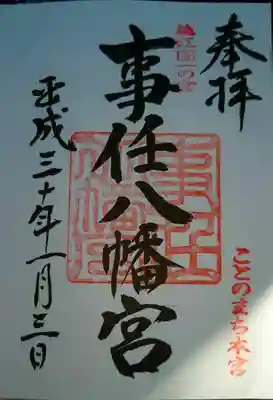 奉拝
遠江國一の宮
事任八幡宮
ことのまち本宮
平成三十年一月三日